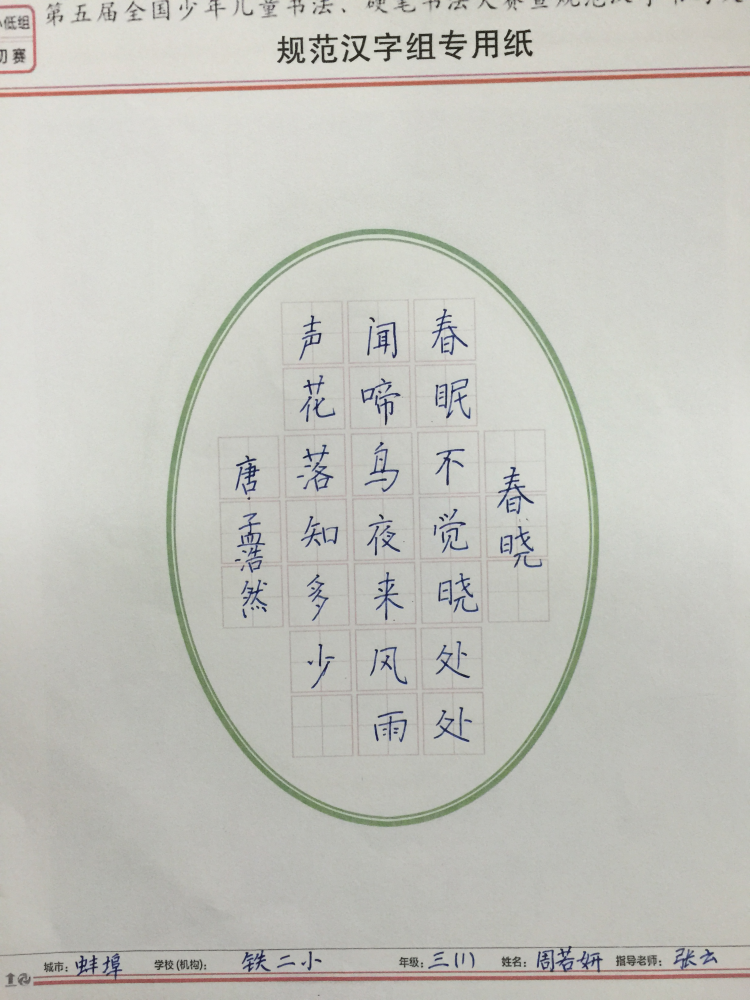 第五届全国少年儿童书法、硬笔书法大赛暨规范汉字书写
低组
初赛
规范汉字组专用纸
春晓
春眠不觉晓处处
闻啼鸟夜来风雨
声花落知多少
唐·孟浩然
城市：蚌埠 学校(机构)：铁二小 年级：三(1) 姓名：周若妍 指导老师：张云